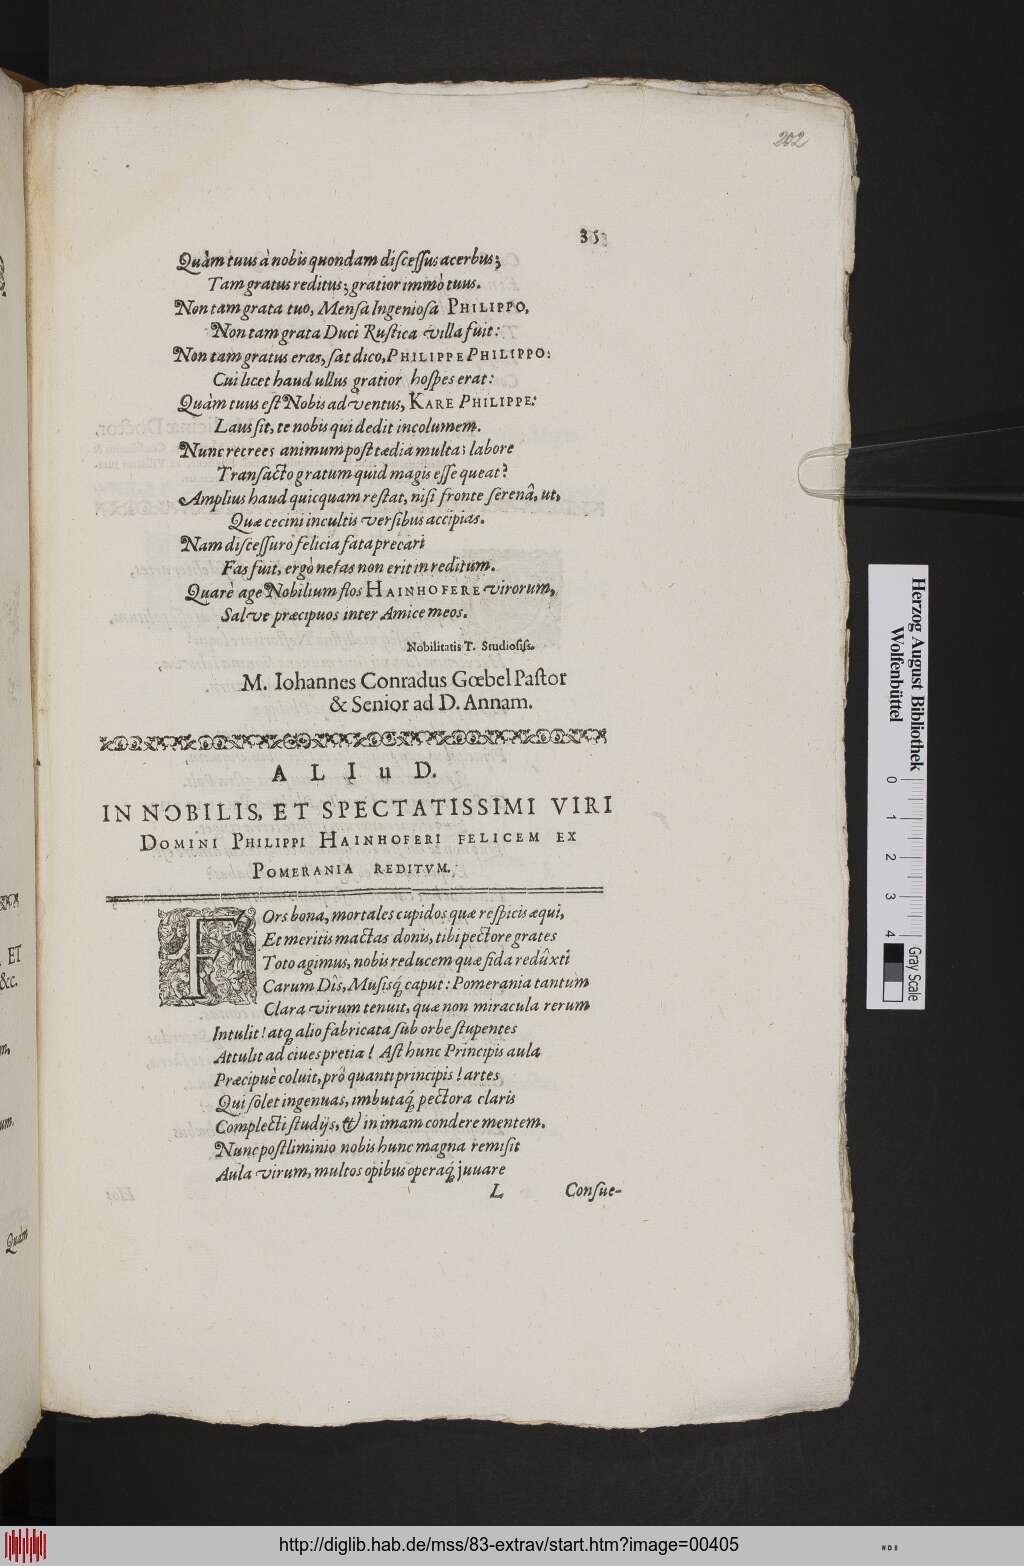 202
353
Quàm tuus à nobis quondam discessus acerbus;
Tam gratus reditus; gratior immò tuus.
Non tam grata tuo, Mensa Ingeniosa PHILIPPO,
Non tam grata Duci Rustica villa fuit:
Non tam gratus eras, sat dico, PHILIPPE PHILIPPO:
Cui licet haud ullus gratior hospes erat:
Quàm tuus est Nobis adventus, KARE PHILIPPE:
Laus sit, te nobis qui dedit incolumem.
Nunc recrees animum post tædia multa; labore
Transacto gratum quid magis esse queat?
Amplius haud quicquam restat, nisi fronte serenâ, ut,
Quæ cecini incultis versibus accipias.
Nam discessuro felicia fata precari
Fas fuit, ergò nefas non erit in reditum.
Quarè age Nobilium flos HAINHOFERE virorum,
Salve præcipuos inter Amice meos.
Nobilitatis T. Studiosiss.
M. Iohannes Conradus Gœbel Pastor
& Senior ad D. Annam.
ALIuD.
IN NOBILIS, ET SPECTATISSIMI VIRI
DOMINI PHILIPPI HAINHOFERI FELICEM EX
POMERANIA REDITVM.
FOrs bona, mortales cupidos quæ respicis æqui,
Et meritis mactas donis, tibi pectore grates
Toto agimus, nobis reducem quæ fida redûxti
Carum Dîs, Musisq́ caput: Pomerania tantum
Clara virum tenuit, quæ non miracula rerum
Intulit! atq alio fabricata sub orbe stupentes
Attulit ad ciues pretia! Ast hunc Principis aula
Præcipuè coluit, prô quanti principis! artes
Qui solet ingenuas, imbutaq́ pectora claris
Complecti studijs, & in imam condere mentem.
Nunc postliminio nobis hunc magna remisit
Aula virum, multos opibus operaq́ juuare
L Consue-
ET
&c.
m,
um.
Herzog August Bibliothek
Wolfenbüttel
0 1 2 3 4
Gray Scale
http://diglib.hab.de/mss/83-extrav/start.htm?image=00405